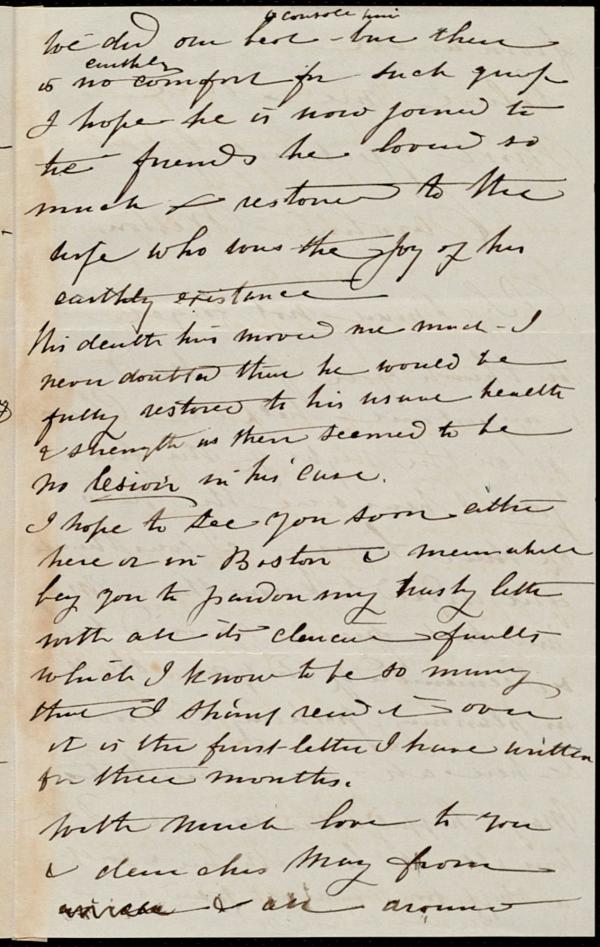 to console him
we did our best - but there
earthly
is no comfort for such grief
I hope he is now joined to
the friends he loved so
much & restored to the
wife who was the joy of his
earthly existance
His death has moved me much - I
never doubted that he would be
fully restored to his usual health
& strength as there seemed to be
no lesion in his case.
I hope to see you soon either
here or in Boston & meanwhile
beg you to pardon my hasty letter
with all its clerical faults
which I know to be so many
that I shant read it over
it is the first letter I have written
for three months.
With much love to you
& dear Miss May from
& all around